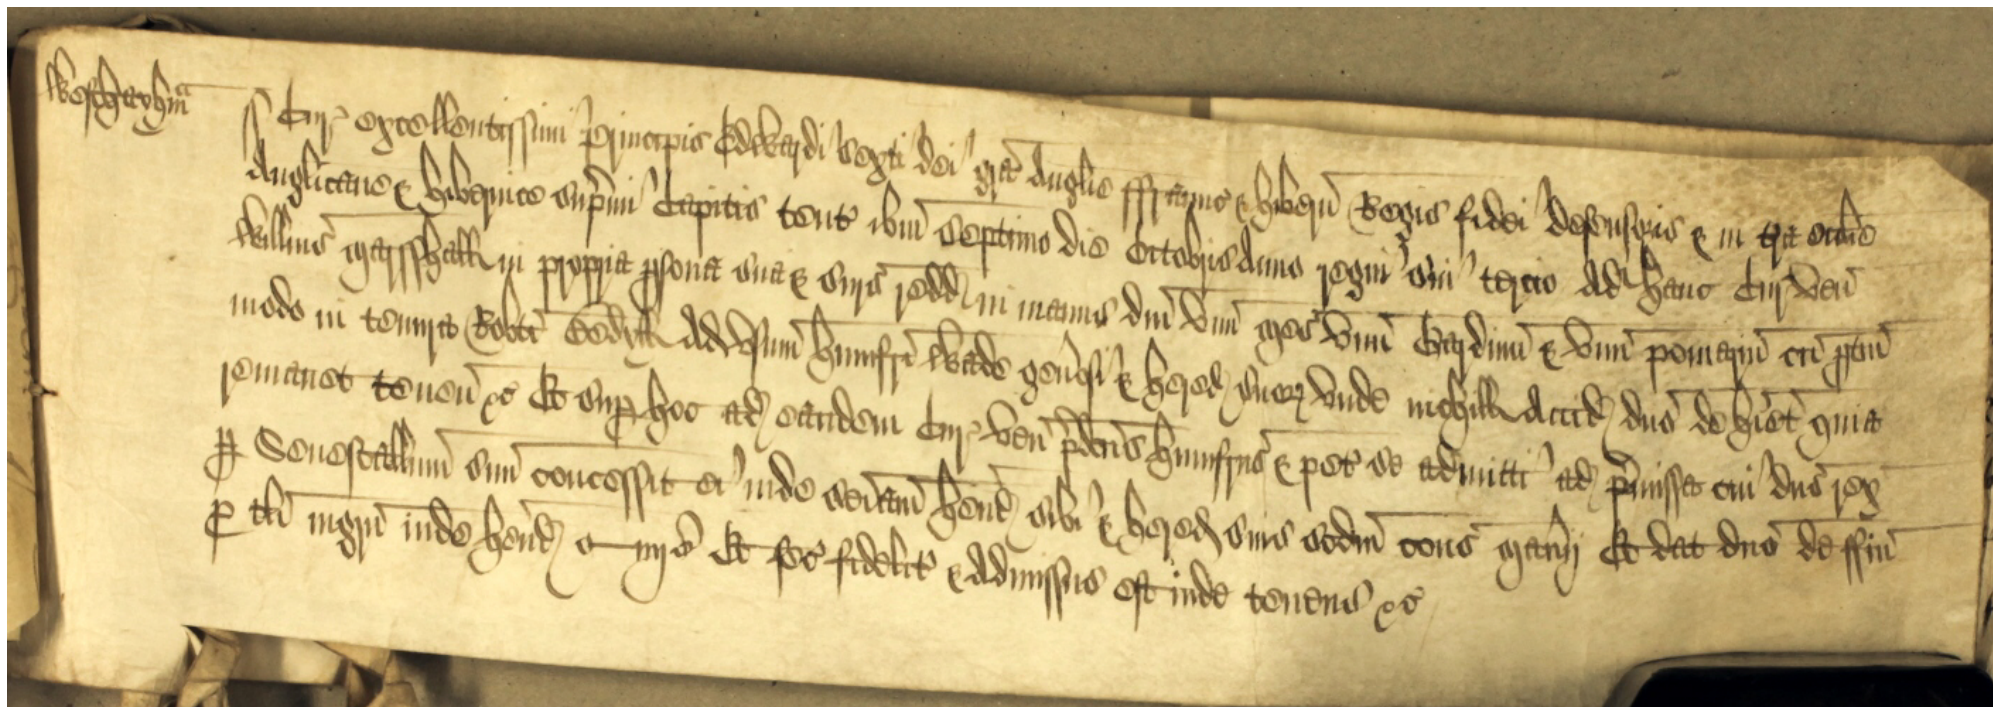 Westharhm
Ad Cur excellentissimi Principis Edwardi sexti dei gra Anglie ffrancie & hibernie Regis fidei defensoris & in tra ecclie
Anglicane & hibernice supmi Capitis tent ibm septimo die Octobris Anno regni sui tercio Ad hanc Cur ven
Willms Marsshall in propria psona sua & surs redd in manus dni vnu mes vnu Gardinu & vnu pomariu cu ptin
modo in tenura Robti Ad vsum humfri Wade genosi & hered suor vnde nichill Accid dno de hiet quia
remanet tenen &c Et sup hoc ad eandem Cur ven pdcus humfrus & pet se admitti ad pmissa cui dns rex
p Senescallum suu concessit ei inde seisinam hend sibi & hered suis scdm cons Manij Et dat dno de ffin
p tli ingru inde hend Et fec fidelit & Admissus est inde tenens &c